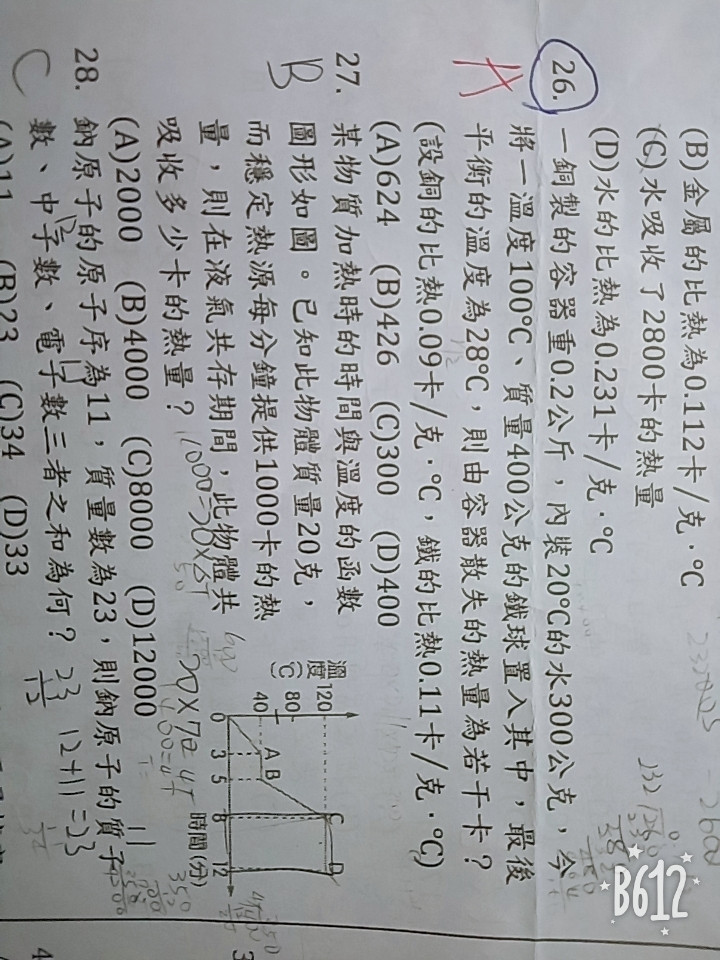 (B)金屬的比熱為0.112卡/克·℃
(C)水吸收了2800卡的熱量
(D)水的比熱為0.231卡/克·℃
26. 一銅製的容器重0.2公斤，內裝20℃的水300公克，今
將一溫度100℃、質量400公克的鐵球置入其中，最後
A 平衡的溫度為28℃，則由容器散失的熱量為若干卡？
(設銅的比熱0.09卡/克·℃，鐵的比熱0.11卡/克·℃)
(A)624 (B)426 (C)300 (D)400
27. 某物質加熱時的時間與溫度的函數
B 圖形如圖。已知此物體質量20克，
而穩定熱源每分鐘提供1000卡的熱
量，則在液氣共存期間，此物體共
吸收多少卡的熱量？
(A)2000 (B)4000 (C)8000 (D)12000
溫度(℃)
120
80
40
A B C D
0 3 5 8 12 時間(分)
28. 鈉原子的原子序為11，質量數為23，則鈉原子的質子
C 數、中子數、電子數三者之和為何？
12+11=23
(A)11 (B)23 (C)34 (D)33
B612